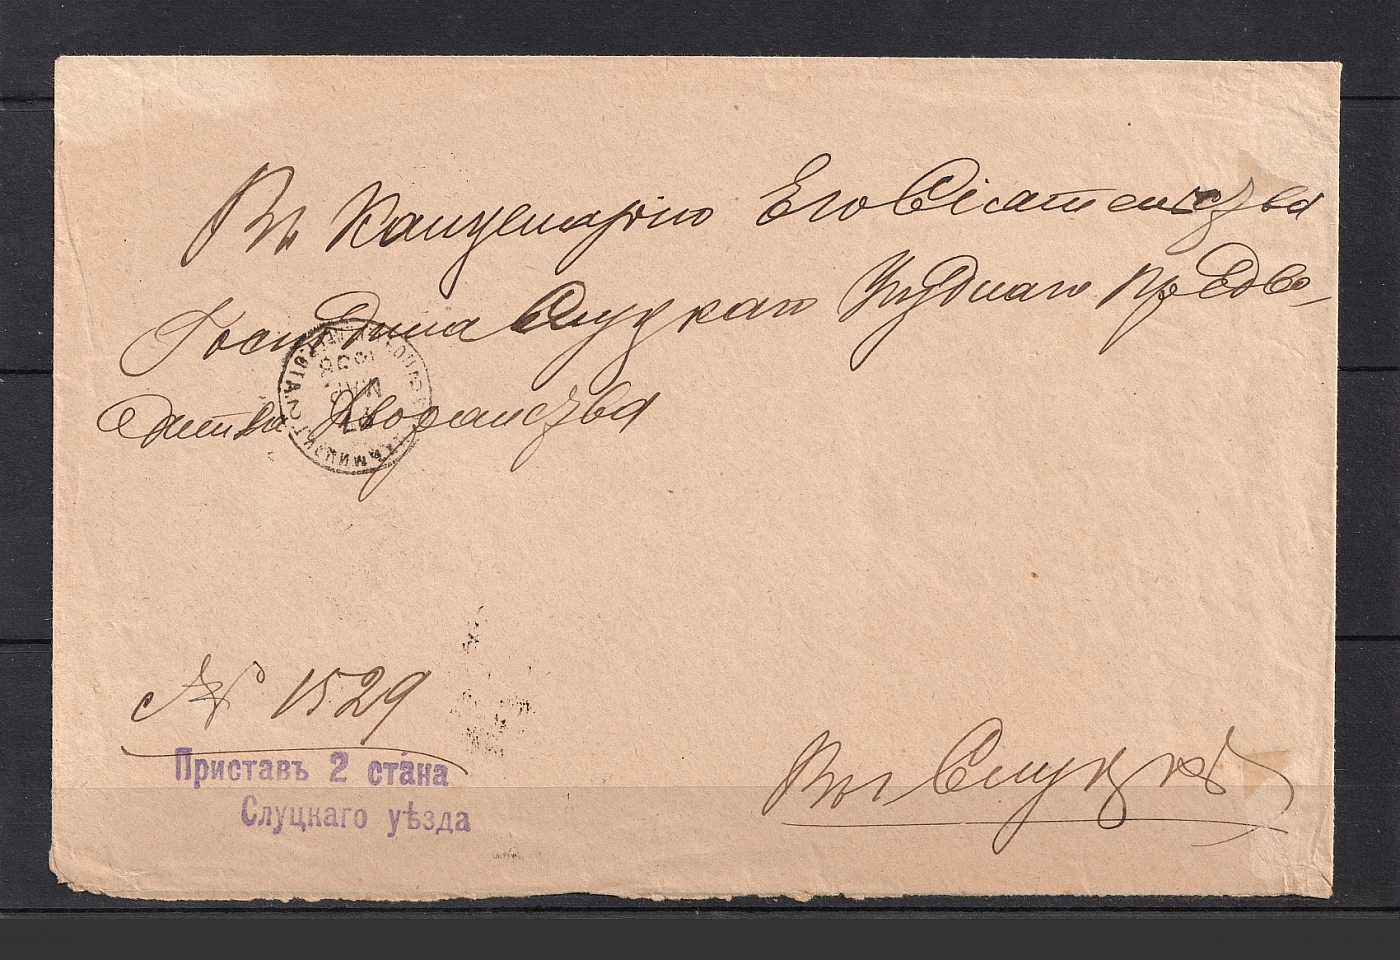 Въ Канцелярію Его Сіятельства
Господина Слуцкаго Уѣзднаго Предво-
дителя Дворянства
№ 1529
Приставъ 2 стана
Слуцкаго уѣзда
Въ Слуцкѣ